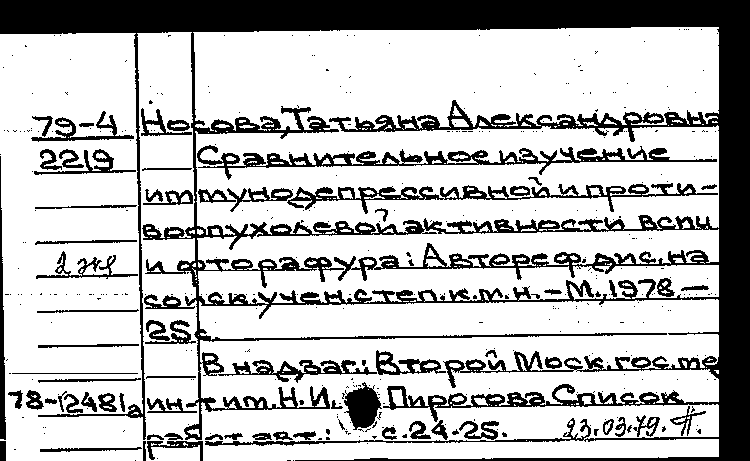 79-4 Носова, Татьяна Александровна
2219 Сравнительное изучение
иммунодепрессивной и проти-
воопухолевой активности вспи
2 экз и фторафура: Автореф. дис. на
соиск. учен. степ. к.м.н. - М., 1978. -
25 с.
В надзаг.: Второй Моск. гос. ме
78-12481а ин-т им. Н. И. Пирогова. Список
работ авт.: с. 24-25. 23.03.79.